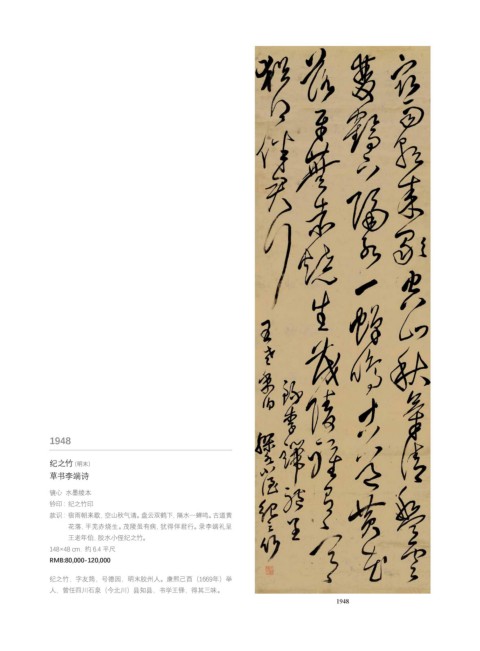 1948
纪之竹 (明末)
草书李端诗
镜心 水墨绫本
钤印：纪之竹印
款识：宿雨朝来歇，空山秋气清。盘云双鹤下，隔水一蝉鸣。古道黄
花落，平芜赤烧生。茂陵虽有病，犹得伴君行。录李端礼呈
王老年伯，胶水小侄纪之竹。
148×48 cm. 约 6.4 平尺
RMB:80,000-120,000
纪之竹，字友筠，号德园，明末胶州人。康熙己酉（1669年）举
人，曾任四川石泉（今北川）县知县，书学王铎，得其三昧。
宿雨朝来歇空山秋氣清盤雲
雙鶴下隔水一蟬鳴古道黄花
落平蕪赤燒生茂陵雖有病
猶得伴君行
錄李端禮呈
王老年伯
膠水小侄紀之竹
1948